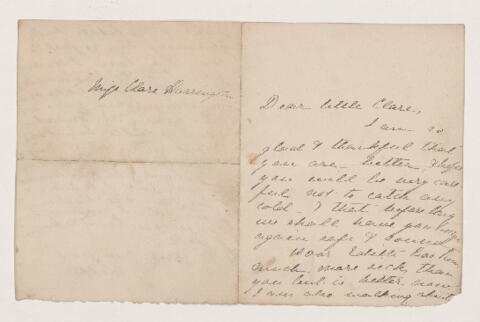 Miss Clare Harrington
Dear little Clare,
I am so
glad & thankful that
you are better, I hope
you will be very care
ful not to catch any
cold - & that before long
we shall have you
again safe & sound
Poor Edith has been
much more sick than
you but is better now
I am also walking about